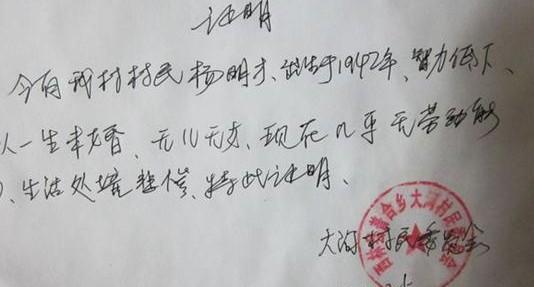 证明
今有我村村民杨明才、出生于1942年、智力低下、
人一生未婚、无儿无女、现在几乎无劳动能
、生活处境悲惨、特此证明、
大河村村民委员会
合乡大河村民委员会